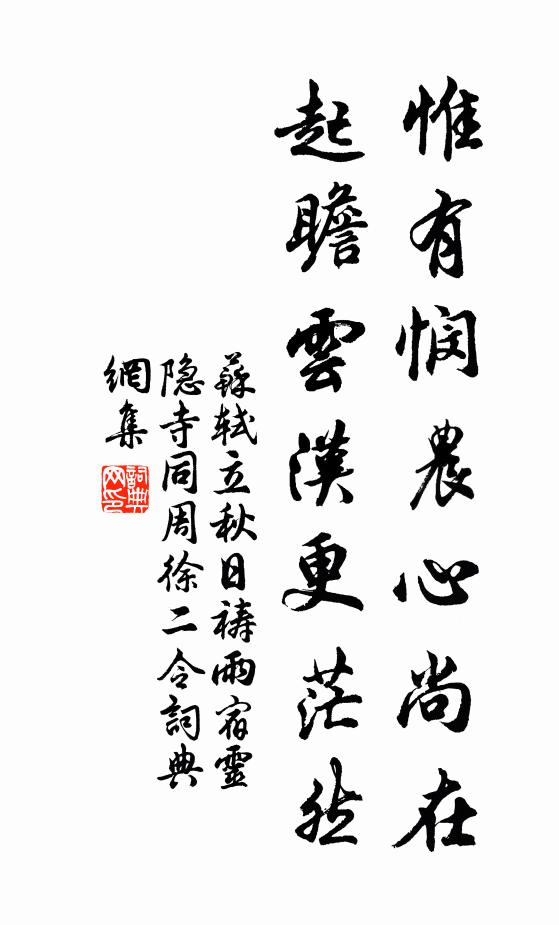 惟有悯農心尚在
起瞻雲漢更茫然
蘇軾立秋日禱雨宿靈
隐寺同周徐二令詞典
網集
詞典
网印